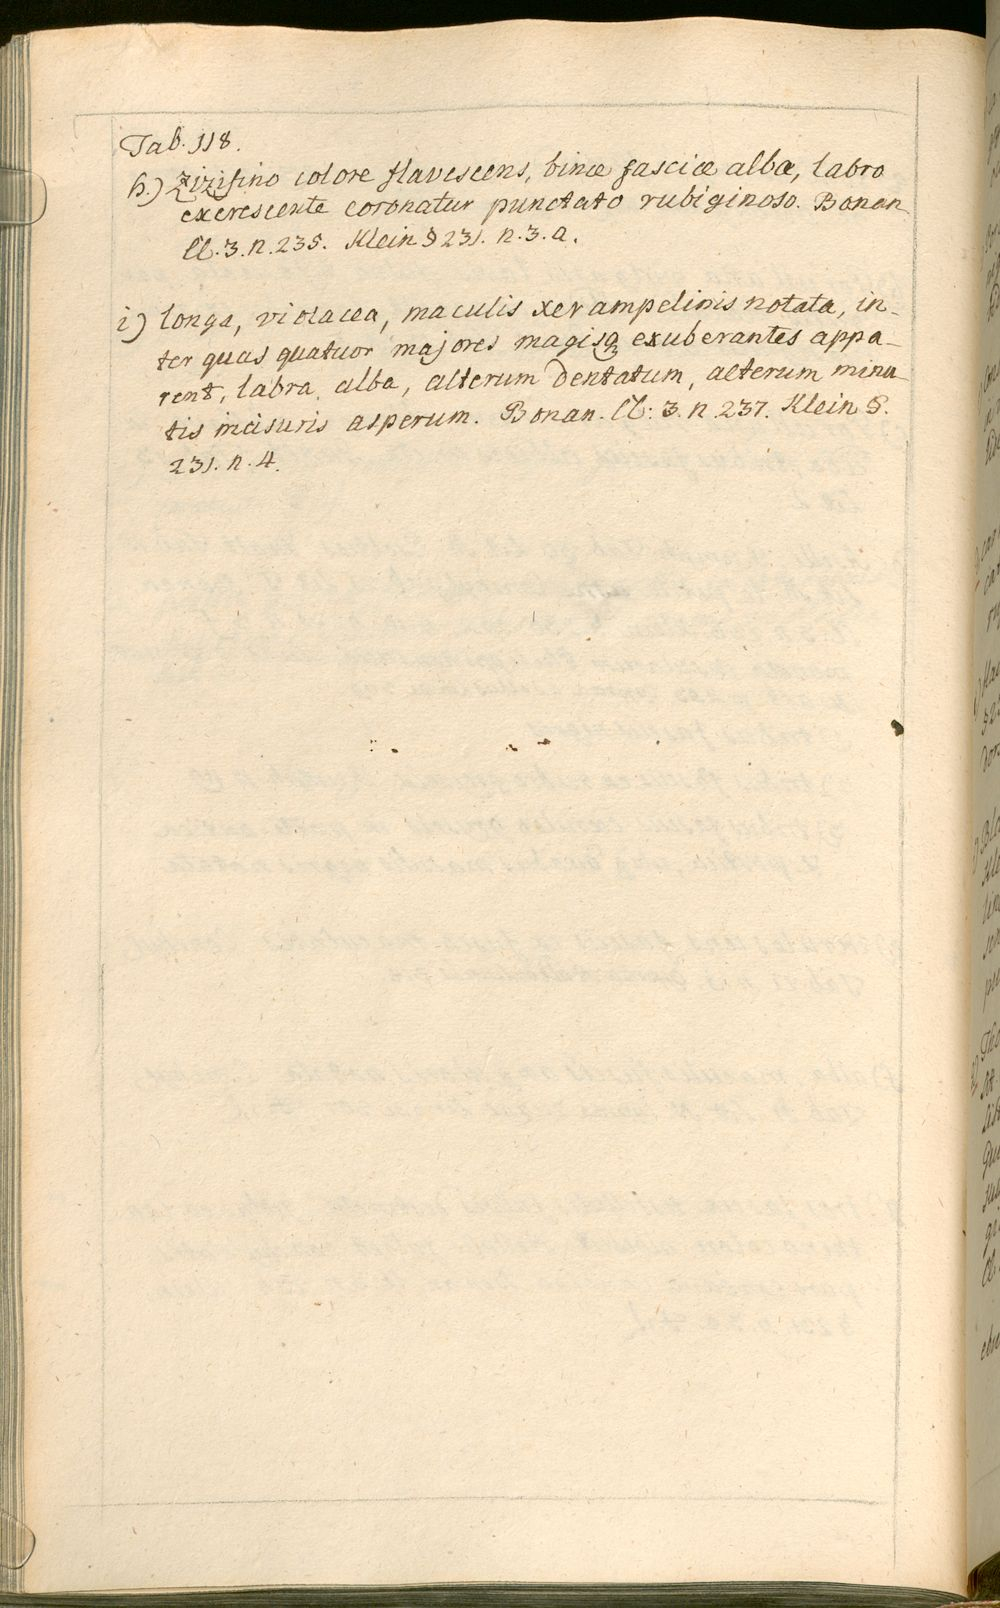 Tab. 118.
h.) zizisino colore flavescens, binæ fasciæ albæ, labro
excrescente coronatur punctato rubiginoso. Bonan.
Cl. 3. n. 235. Klein § 231. n. 3. a.
i) longa, violacea, maculis xerampelinis notata, in-
ter quas quatuor majores magisq exuberantes appa-
rent, labra alba, alterum dentatum, alterum minu
tis incisuris asperum. Bonan. Cl: 3. n. 237. Klein §.
231. n. 4.